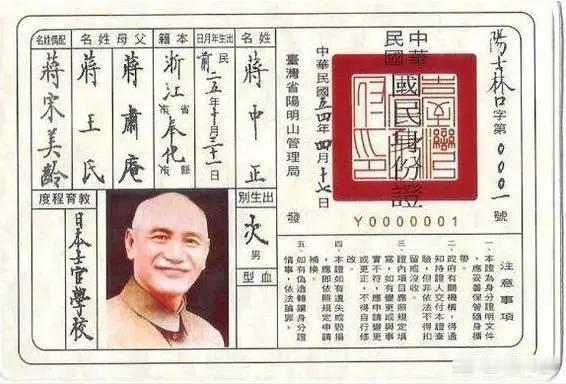 陽士林口字第0001號
中華民國
國民身份證
Y0000001
中華民國五四年四月十七日
臺灣省陽明山管理局 發
姓名
蔣中正
本籍
浙江省 市
奉化縣 市
出生年月日
民前二五年十月三十一日
父母姓名
蔣肅庵
蔣王氏
配偶姓名
蔣宋美齡
出生別
次男
血型
教育程度
日本士官學校
注意事項
一、本證為身分證明文件
,應妥善保管隨身攜
帶。
二、政府有關機構,得通
知持證人交付本證查
驗,但非依法不得扣
留或沒收。
三、證內項目應照規定填
寫,如有變更或與事
實不符,應申請變更
或更正,不得自行修
改。
四、本證如有遺失或毀損
,應即依照規定申請
補換。
五、如有偽造轉讓身分證
情事,依法論罪。